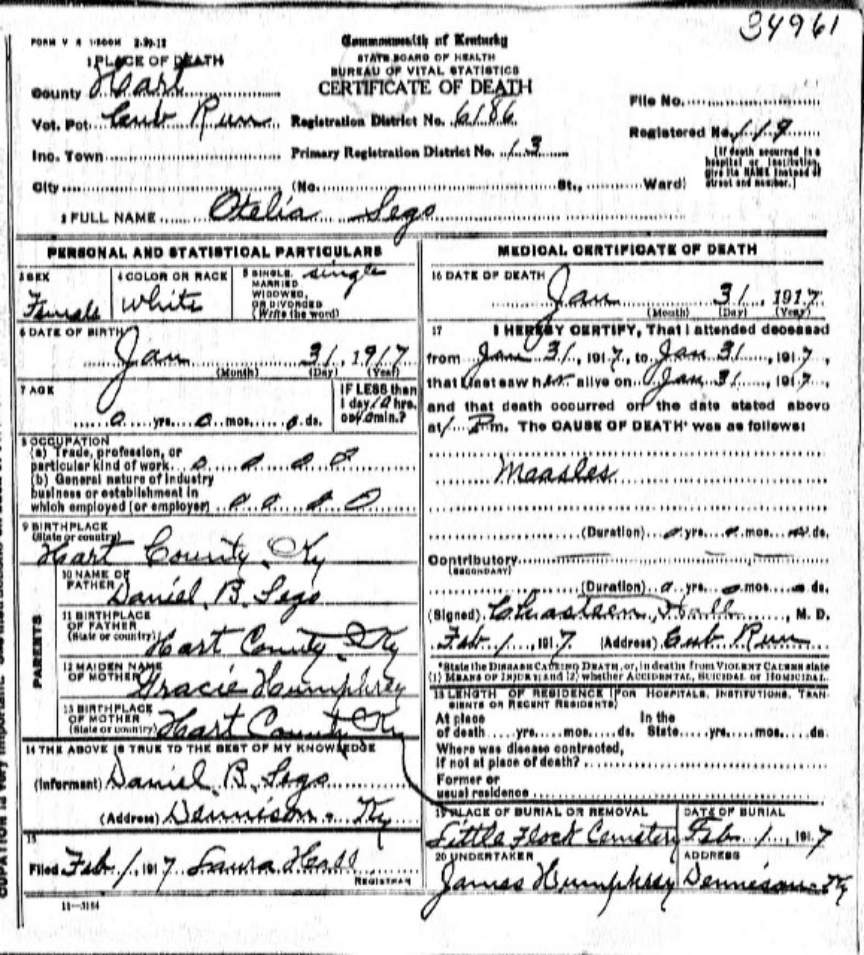 34961
FORM V S 1-500M 2-29-12
Commonwealth of Kentucky
STATE BOARD OF HEALTH
BUREAU OF VITAL STATISTICS
CERTIFICATE OF DEATH
1 PLACE OF DEATH
County Hart
Vot. Pct. Cub Run
Registration District No. 6186
File No.
Inc. Town
Primary Registration District No. 13
Registered No. 119
City (No. St., Ward)
[If death occurred in a hospital or institution, give its NAME instead of street and number.]
2 FULL NAME Otelia Sego
PERSONAL AND STATISTICAL PARTICULARS
3 SEX
Female
4 COLOR OR RACE
White
5 SINGLE, MARRIED WIDOWED, OR DIVORCED (Write the word)
single
6 DATE OF BIRTH
Jan 31, 1917
(Month) (Day) (Year)
7 AGE
0 yrs. 0 mos. 0 ds.
IF LESS than
1 day 10 hrs.
or 40 min.?
8 OCCUPATION
(a) Trade, profession, or
particular kind of work 0 0 0 0
(b) General nature of industry
business or establishment in
which employed (or employer) 0 0 0 0
9 BIRTHPLACE
(State or country)
Hart County, Ky
PARENTS
10 NAME OF FATHER
Daniel B. Sego
11 BIRTHPLACE OF FATHER
(State or country)
Hart County Ky
12 MAIDEN NAME OF MOTHER
Gracie Humphrey
13 BIRTHPLACE OF MOTHER
(State or country)
Hart County Ky
14 THE ABOVE IS TRUE TO THE BEST OF MY KNOWLEDGE
(Informant) Daniel B. Sego
(Address) Dennison, Ky
15
Filed Feb 1, 1917 Laura Hall
REGISTRAR
11-3184
MEDICAL CERTIFICATE OF DEATH
16 DATE OF DEATH
Jan 31, 1917
(Month) (Day) (Year)
17 I HEREBY CERTIFY, That I attended deceased
from Jan 31, 1917, to Jan 31, 1917,
that I last saw her alive on Jan 31, 1917,
and that death occurred on the date stated above
at 1 P m. The CAUSE OF DEATH* was as follows:
Measles
(Duration) 0 yrs. 0 mos. ds.
Contributory
(SECONDARY)
(Duration) 0 yrs. 0 mos. ds.
(Signed) Chasteen Hall, M. D.
Feb 1, 1917 (Address) Cub Run
*State the DISEASE CAUSING DEATH, or, in deaths from VIOLENT CAUSES state
(1) MEANS OF INJURY; and (2) whether ACCIDENTAL, SUICIDAL or HOMICIDAL.
18 LENGTH OF RESIDENCE (FOR HOSPITALS, INSTITUTIONS, TRANSIENTS OR RECENT RESIDENTS)
At place In the
of death yrs. mos. ds. State yrs. mos. ds.
Where was disease contracted,
if not at place of death?
Former or
usual residence
19 PLACE OF BURIAL OR REMOVAL
Little Flock Cemetery
DATE OF BURIAL
Feb 1, 1917
20 UNDERTAKER
James Humphrey
ADDRESS
Dennison Ky